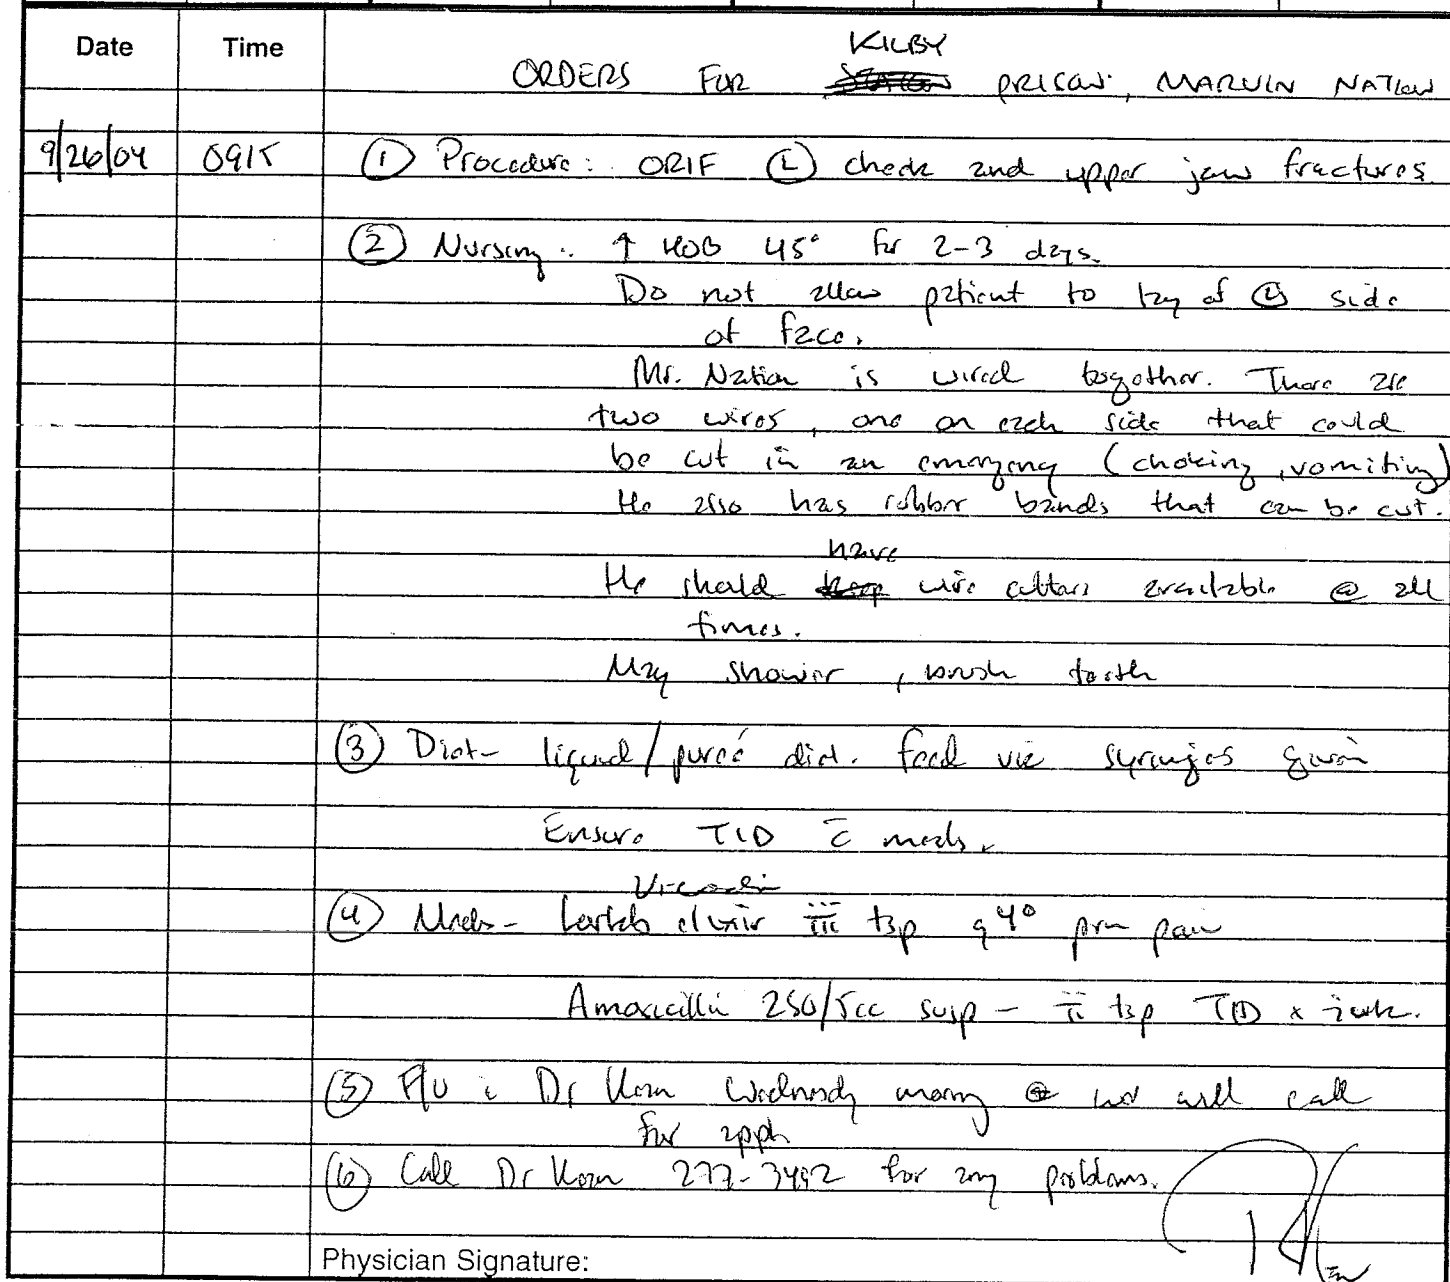 Date Time
KILBY
ORDERS FOR PRISON, MARVIN NATION
9/26/04 0915 ① Procedure: ORIF Ⓛ cheek and upper jaw fractures
② Nursing: ↑ HOB 45° for 2-3 days.
Do not allow patient to lay of Ⓛ side
of face.
Mr. Nation is wired together. There are
two wires, one on each side that could
be cut in an emergency (choking, vomiting)
He also has rubber bands that can be cut.
have
He should wire cutters available @ all
times.
May shower, brush teeth
③ Diet- liquid/pureé diet. Feed via syringes given
Ensure TID c̄ meals.
Vicodin
④ Meds- Lortab elixir iii tsp q 4° prn pain
Amoxicillin 250/5cc susp - ii tsp TID x
⑤ F/U c̄ Dr Wednesday will call
for appt
⑥ Call Dr 277-3492 for any problems.
Physician Signature: